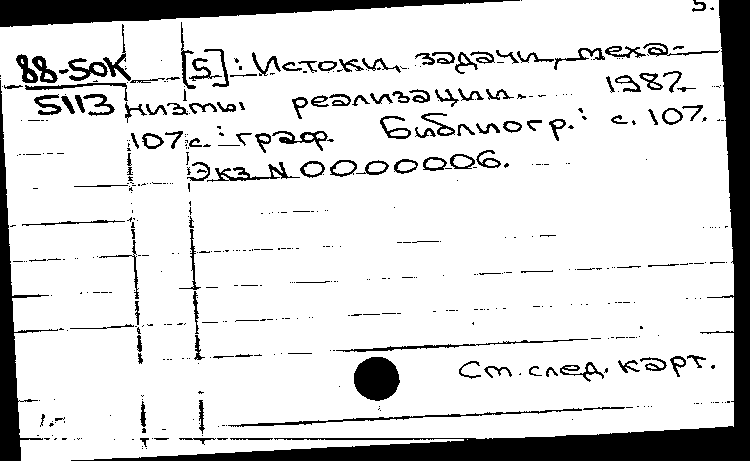 5.
88-50К [5]: Истоки, задачи, меха-
5113 низмы реализации. 1987.
107 с.: граф. Библиогр.: с. 107.
Экз N 0000006.
См. след. карт.